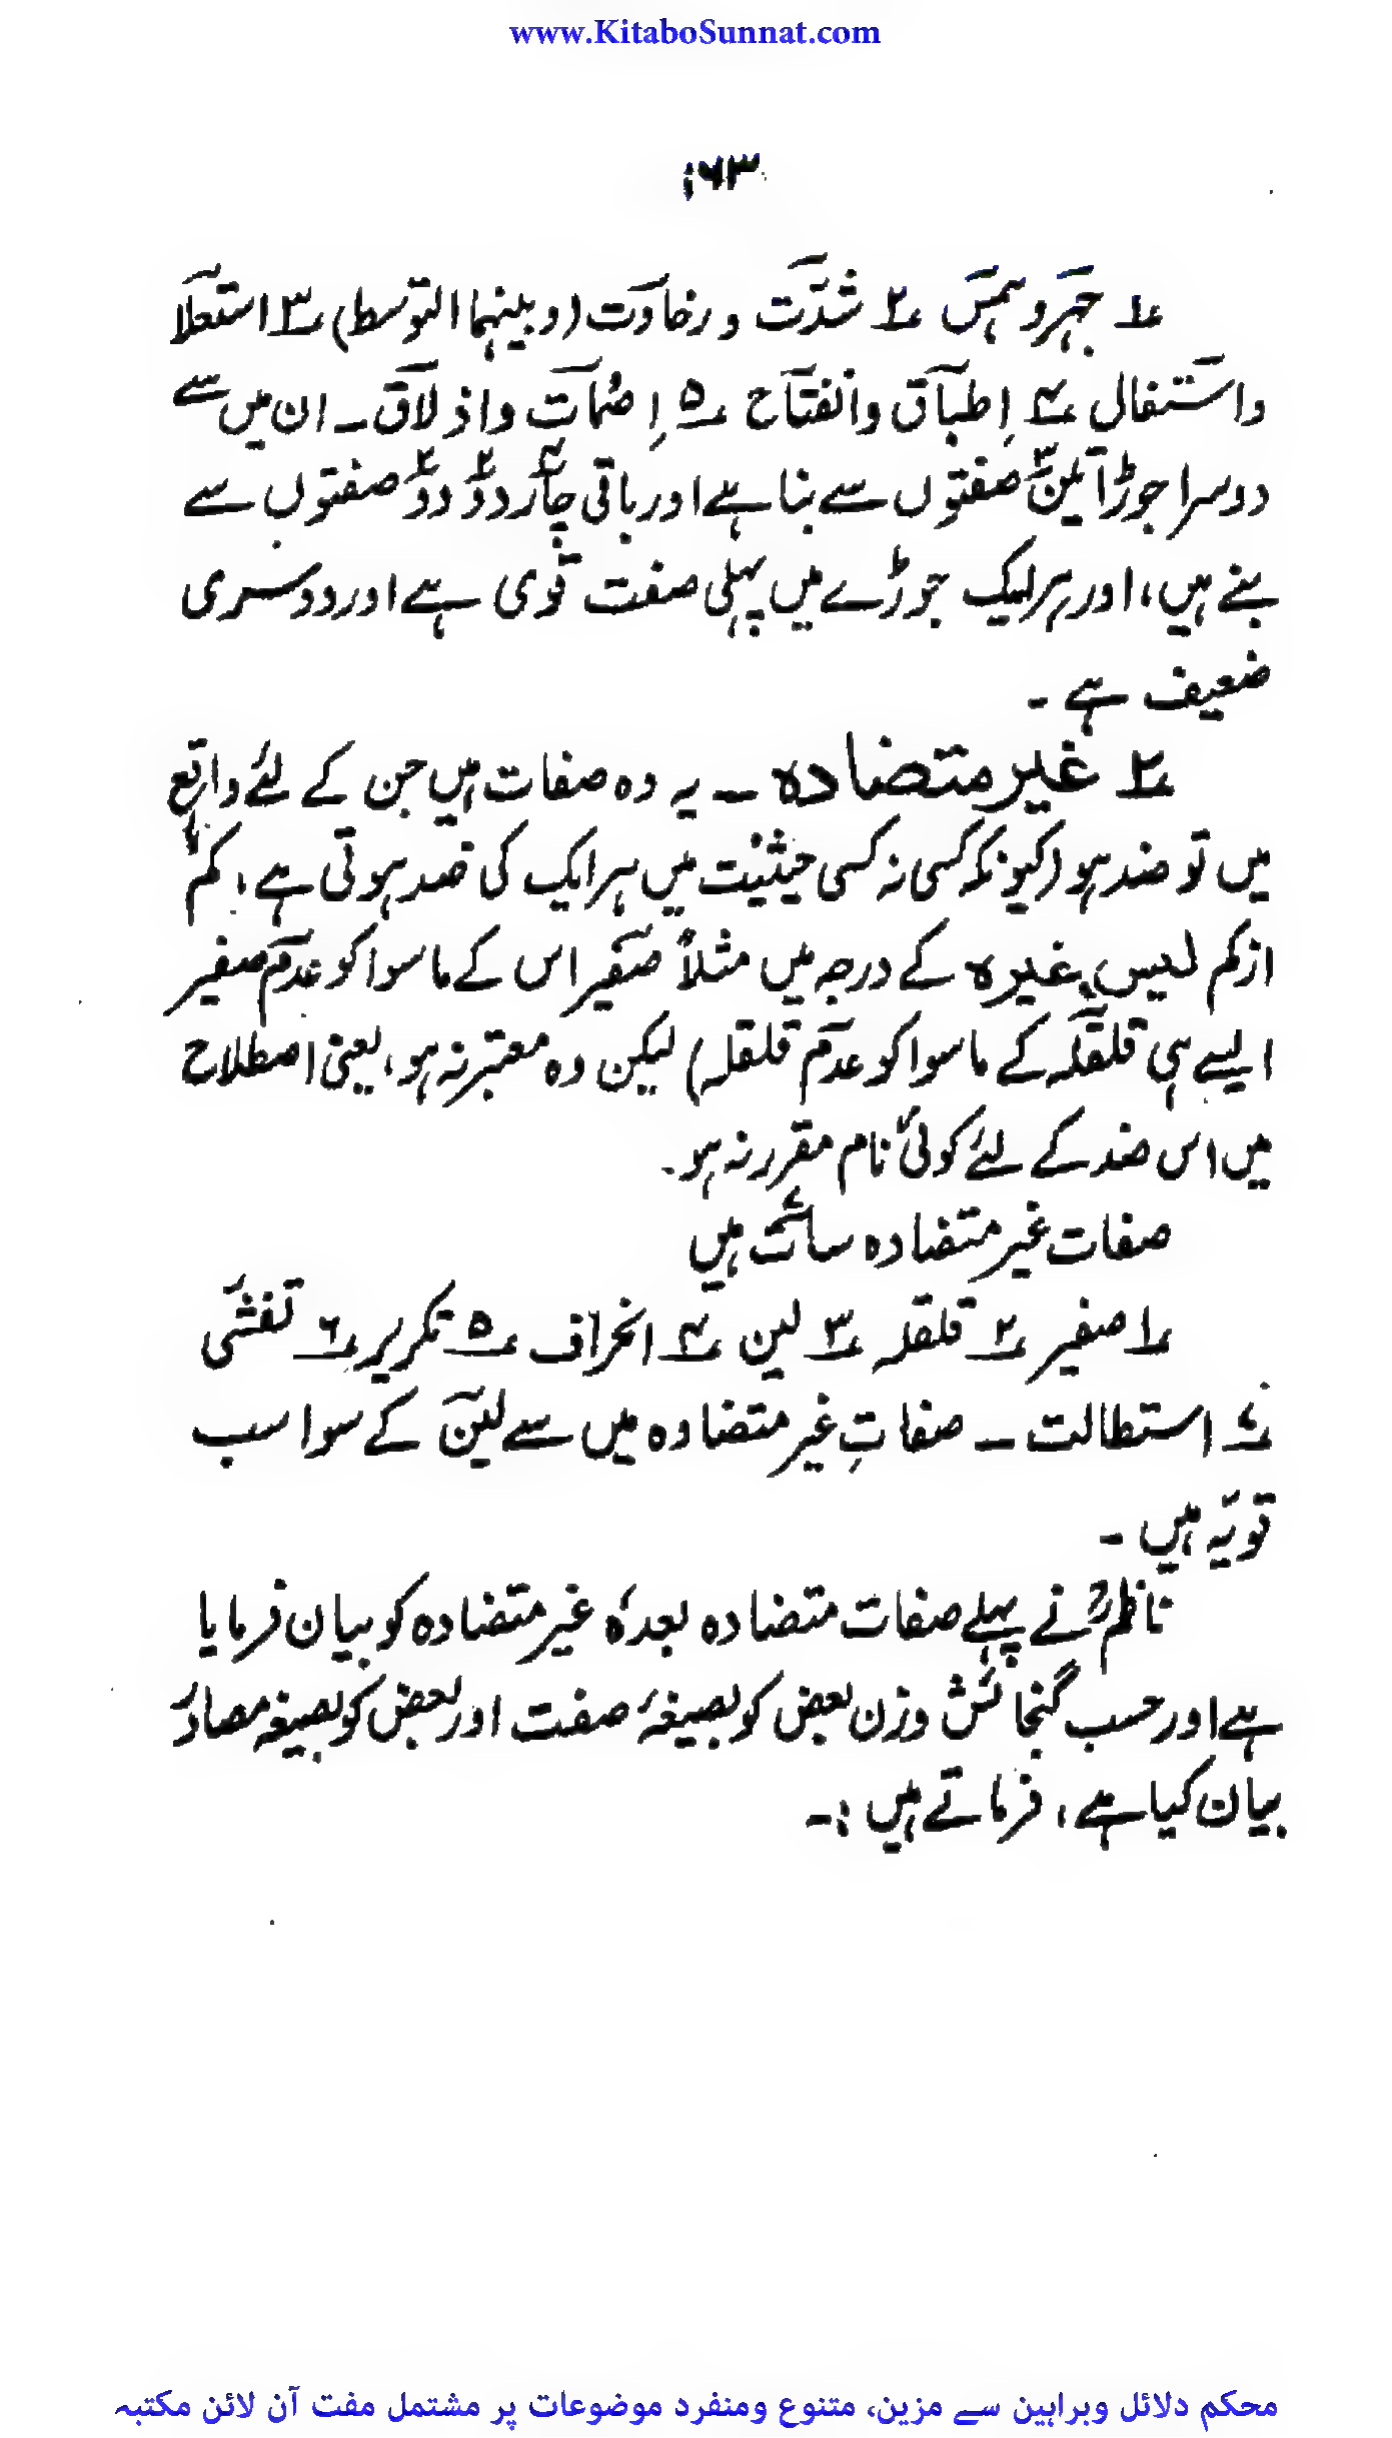 www.KitaboSunnat.com
۱۶۳
۱؎ جہر و ہمس ۲؎ شدت و رخاوت (و بینہما التوسط) ۳؎ استعلا
و استفال ۴؎ اِطباق و انفتاح ۵؎ اِصمات و اذلاق ۔ ان میں سے
دوسرا جوڑا تین۳ صفتوں سے بنا ہے اور باقی چار۴ دو۲ دو۲ صفتوں سے
بنے ہیں، اور ہر ایک جوڑے میں پہلی صفت قوی ہے اور دوسری
ضعیف ہے ۔
۲؎ غیر متضادہ ــ یہ وہ صفات ہیں جن کے لئے واقع
میں تو ضد ہو (کیونکہ کسی نہ کسی حیثیت میں ہر ایک کی ضد ہوتی ہے، کم
از کم لیس غیرہ کے درجہ میں مثلاً صفیر اس کے ماسوا کو عدم صفیر
ایسے ہی قلقلہ کے ماسوا کو عدم قلقلہ) لیکن وہ معتبر نہ ہو، یعنی اصطلاح
میں اس ضد کے لئے کوئی نام مقرر نہ ہو۔
صفات غیر متضادہ سات۷ ہیں
۱؎ صفیر ۲؎ قلقلہ ۳؎ لین ۴؎ انحراف ۵؎ تکریر ۶؎ تفشی
۷؎ استطالت ــ صفاتِ غیر متضادہ میں سے لین کے سوا سب
قویہ ہیں ۔
ناظمؒ نے پہلے صفات متضادہ بعدہٗ غیر متضادہ کو بیان فرمایا
ہے اور حسب گنجائش وزن بعض کو بصیغۂ صفت اور بعض کو بصیغہ مصادر
بیان کیا ہے، فرماتے ہیں :۔
محکم دلائل وبراہین سے مزین، متنوع ومنفرد موضوعات پر مشتمل مفت آن لائن مکتبہ